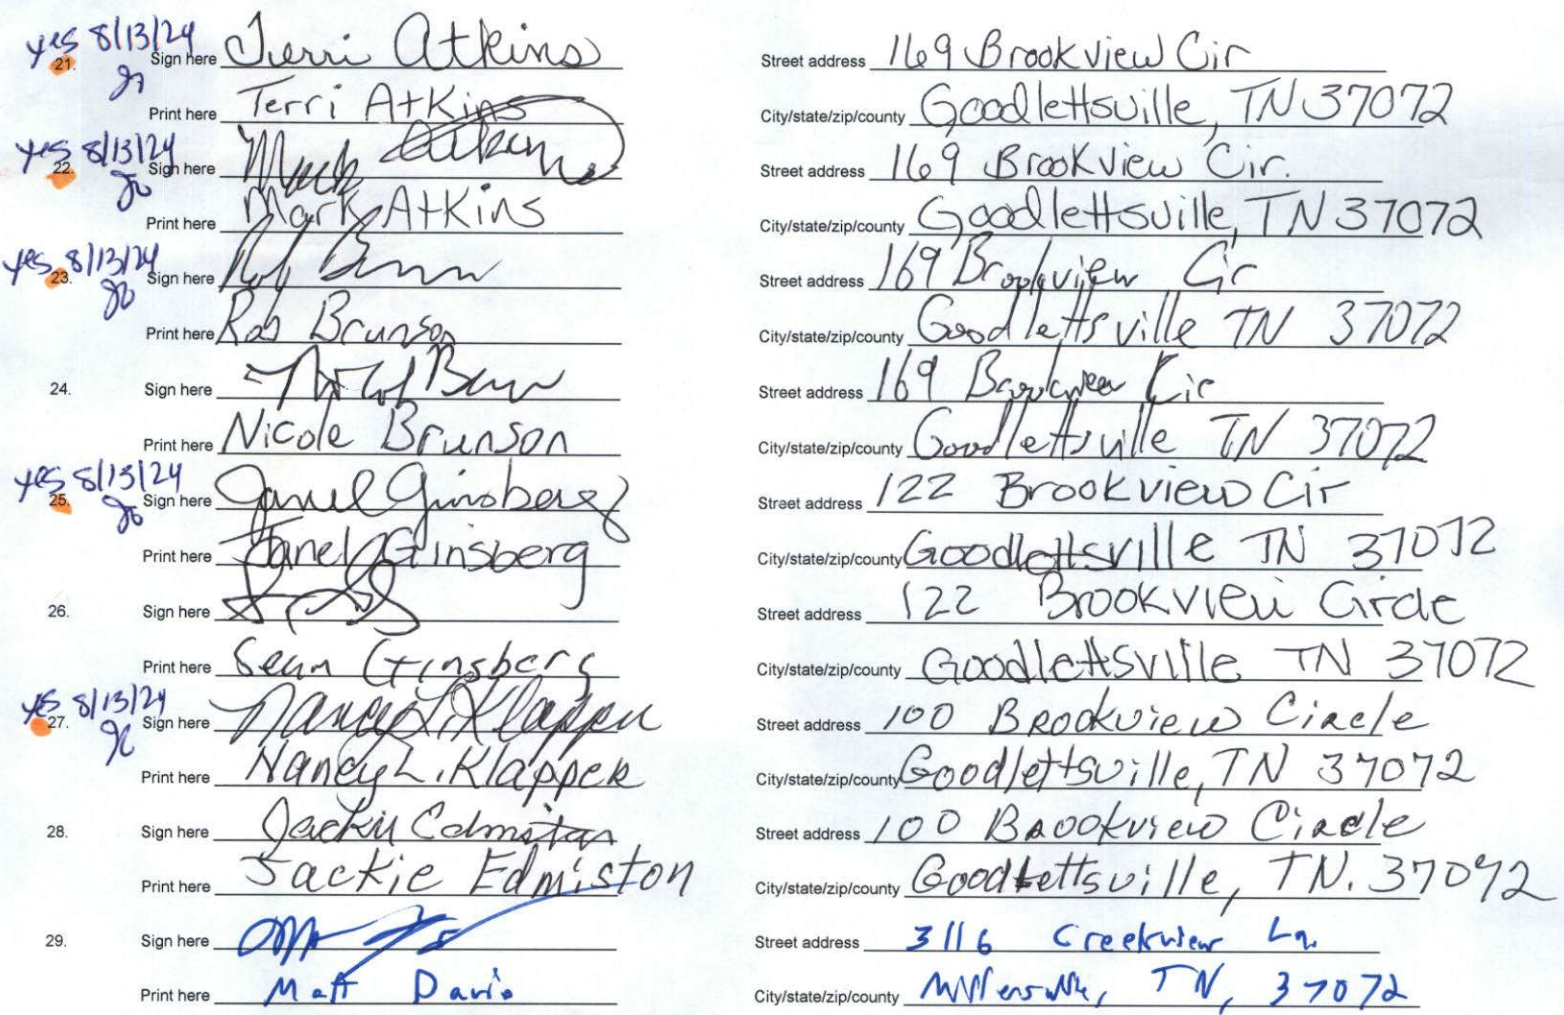 yes 8/13/24
21. Sign here Terri Atkins Street address 169 Brookview Cir
Print here Terri Atkins City/state/zip/county Goodlettsville, TN 37072
yes 8/13/24
22. Sign here Mark Atkins Street address 169 Brookview Cir.
Print here Mark Atkins City/state/zip/county Goodlettsville, TN 37072
yes 8/13/24
23. Sign here Rob Brunson Street address 169 Brookview Cir
Print here Rob Brunson City/state/zip/county Goodlettsville TN 37072
24. Sign here Street address 169 Brookview Cir
Print here Nicole Brunson City/state/zip/county Goodlettsville TN 37072
yes 8/13/24
25. Sign here Janel Ginsberg Street address 122 Brookview Cir
Print here Janel Ginsberg City/state/zip/county Goodlettsville TN 37072
26. Sign here Street address 122 Brookview Circle
Print here Sean Ginsberg City/state/zip/county Goodlettsville TN 37072
yes 8/13/24
27. Sign here Nancy L. Klapper Street address 100 Brookview Circle
Print here Nancy L. Klapper City/state/zip/county Goodlettsville, TN 37072
28. Sign here Jackie Edmiston Street address 100 Brookview Circle
Print here Jackie Edmiston City/state/zip/county Goodlettsville, TN. 37072
29. Sign here Street address 3116 Creekview Ln.
Print here Matt Davis City/state/zip/county Millersville, TN, 37072